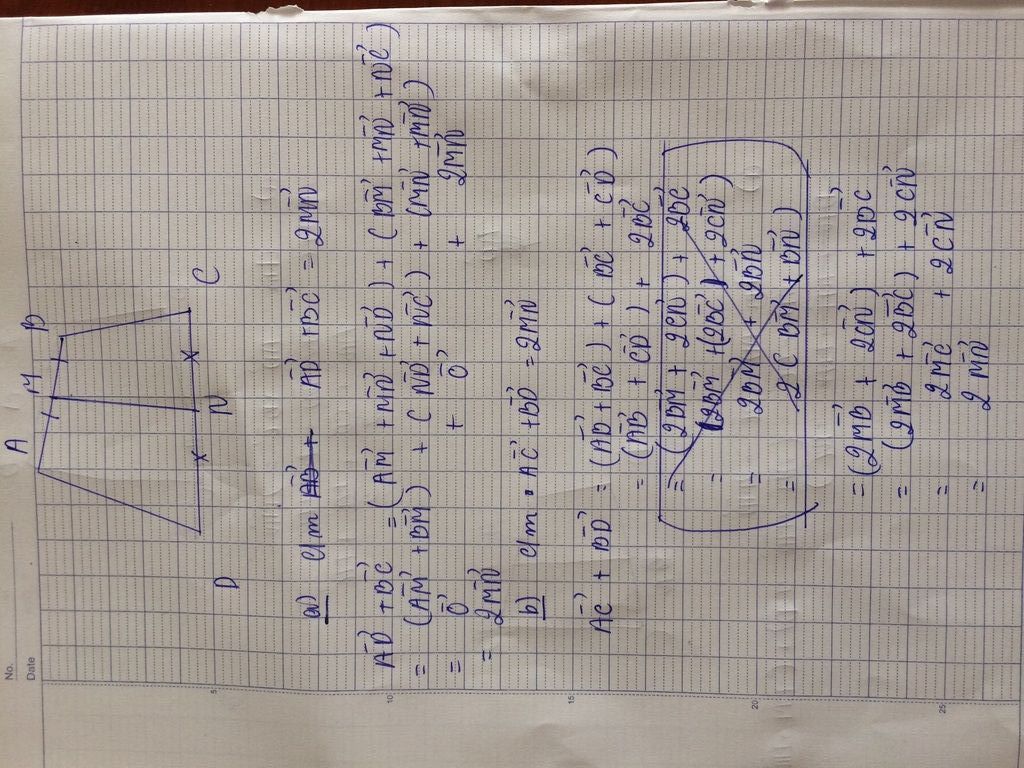 No.
Date
A M B
D N C
a) c/m A͞B͞ + A͞D͞ + B͞C͞ = 2M͞N͞
A͞D͞ + B͞C͞ = (A͞M͞ + M͞N͞ + N͞D͞) + (B͞M͞ + M͞N͞ + N͞C͞)
= (A͞M͞ + B͞M͞) + (N͞D͞ + N͞C͞) + (M͞N͞ + M͞N͞)
= O͞ + O͞ + 2M͞N͞
= 2M͞N͞
b) c/m A͞C͞ + B͞D͞ = 2M͞N͞
A͞C͞ + B͞D͞ = (A͞B͞ + B͞C͞) + (B͞C͞ + C͞D͞)
= (A͞B͞ + C͞D͞) + 2B͞C͞
= (2B͞M͞ + 2C͞N͞) + 2B͞C͞
= (2B͞M͞ + (2B͞C͞) + 2C͞N͞)
= 2B͞M͞ + 2B͞N͞
= 2(B͞M͞ + B͞N͞)
= (2M͞B͞ + 2C͞N͞) + 2B͞C͞
= (2M͞B͞ + 2B͞C͞) + 2C͞N͞
= 2M͞C͞ + 2C͞N͞
= 2M͞N͞
5
10
15
20
25